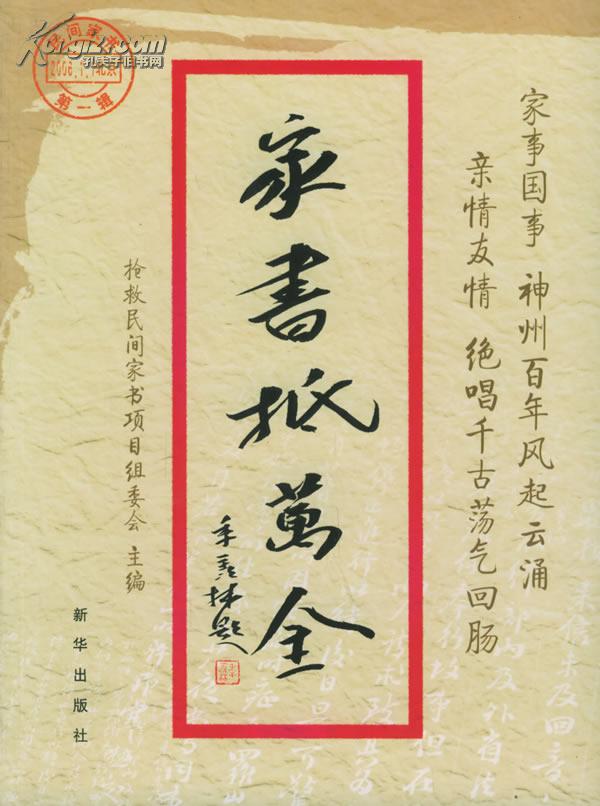 家事国事 神州百年风起云涌
亲情友情 绝唱千古荡气回肠
家書抵萬金
季羡林题
抢救民间家书项目组委会 主编
新华出版社
民间家书
第一辑
孔夫子旧书网